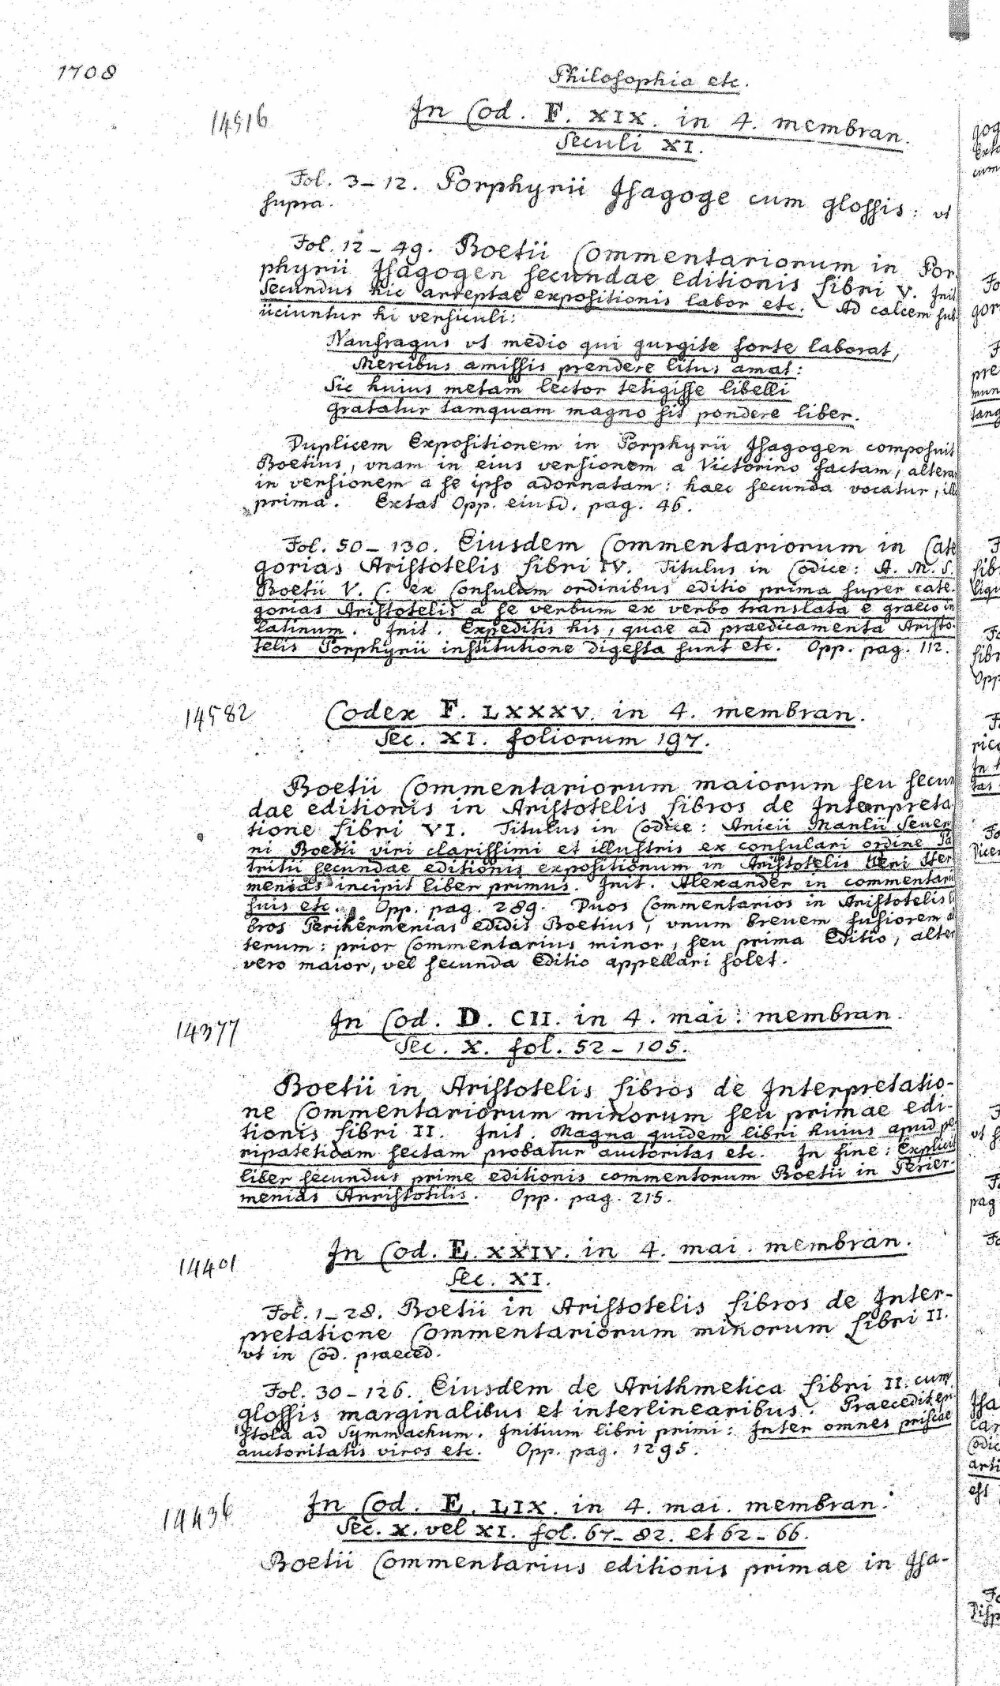 1708
Philosophia etc.
14516
In Cod. F. XIX. in 4. membran.
Seculi XI.
Fol. 3-12. Porphyrii Isagoge cum glossis: vt
supra.
Fol. 12-49. Boetii Commentariorum in Por
phyrii Isagogen secundae editionis Libri V. Init
Secundus hic arreptae expositionis labor etc. Ad calcem sub
iiciuntur hi versiculi:
Naufragus vt medio qui gurgite forte laborat,
Mercibus amissis prendere litus amat:
Sic huius metam lector tetigisse libelli
gratatur tamquam magno sit pondere liber.
Duplicem Expositionem in Porphyrii Isagogen composuit
Boetius, vnam in eius versionem a Victorino factam, altera
in versionem a se ipso adornatam: haec secunda vocatur, illa
prima. Extat Opp. eiusd. pag. 46.
Fol. 50-130. Eiusdem Commentariorum in Cate
gorias Aristotelis Libri IV. Titulus in Codice: A. M. S.
Boetii V. C. ex Consulum ordinibus editio prima super cate-
gorias Aristotelis a se verbum ex verbo translata e graeco in
latinum. Init. Expeditis his, quae ad praedicamenta Aristo-
telis Porphyrii institutione digesta sunt etc. Opp. pag. 112.
14582
Codex F. LXXXV. in 4. membran.
Sec. XI. foliorum 197.
Boetii Commentariorum maiorum seu secun
dae editionis in Aristotelis Libros de Interpreta
tione Libri VI. Titulus in Codice: Anicii Manlii Seueri
ni Boetii viri clarissimi et illustris ex consulari ordine Pa
tritii secundae editionis expositionum in Aristotelis Peri Her
menias incipit liber primus. Init. Alexander in commentari
suis etc. Opp. pag. 289. Duos Commentarios in Aristotelis li
bros Perihermenias edidit Boetius, vnum breuem fusiorem al
terum: prior Commentarius minor, seu prima Editio, alter
vero maior, vel secunda Editio appellari solet.
14377
In Cod. D. CII. in 4. mai. membran.
Sec. X. fol. 52-105.
Boetii in Aristotelis Libros de Interpretatio-
ne Commentariorum minorum seu primae edi-
tionis Libri II. Init. Magna quidem libri huius apud pe
ripateticam sectam probatur auctoritas etc. In fine: Explicit
liber secundus prime editionis commentorum Boetii in Perier
menias Arristotilis. Opp. pag. 215.
14401
In Cod. E. XXIV. in 4. mai. membran.
Sec. XI.
Fol. 1-28. Boetii in Aristotelis Libros de Inter-
pretatione Commentariorum minorum Libri II.
vt in Cod. praeced.
Fol. 30-126. Eiusdem de Arithmetica Libri II. cum
glossis marginalibus et interlinearibus. Praecedit epi
stola ad Symmachum. Initium libri primi: Inter omnes priscae
auctoritatis viros etc. Opp. pag. 1295.
14436
In Cod. E. LIX. in 4. mai. membran.
Sec. X. vel XI. fol. 67-82. et 62-66.
Boetii Commentarius editionis primae in Isa-